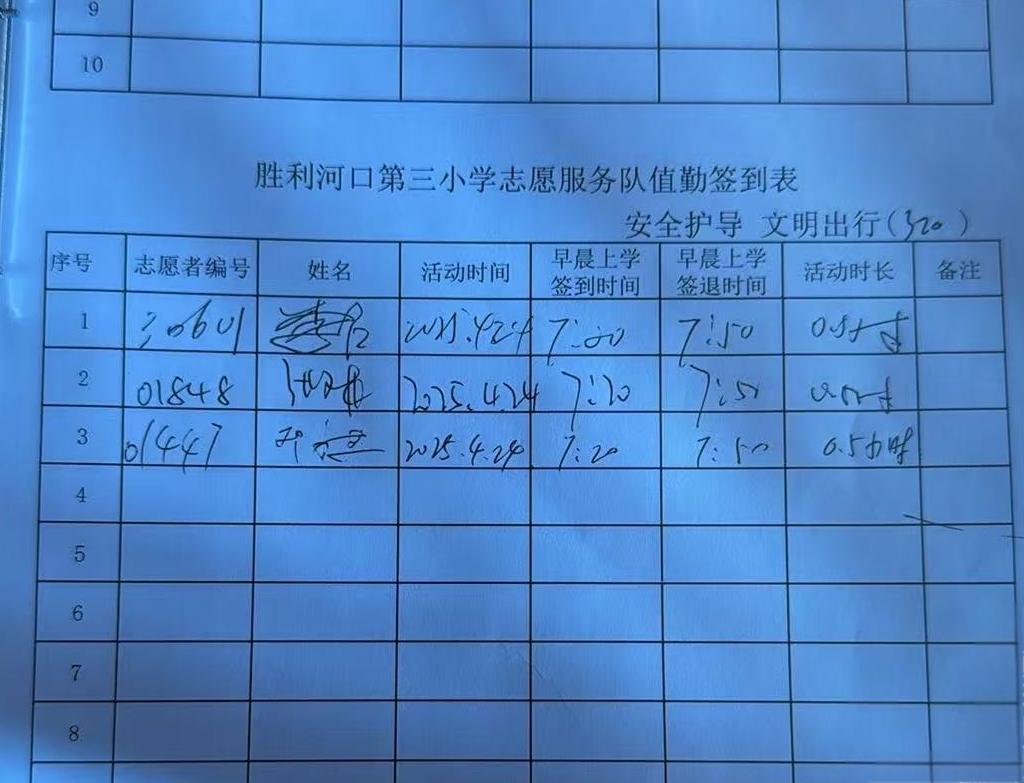 9
10
胜利河口第三小学志愿服务队值勤签到表
安全护导 文明出行(320)
序号 志愿者编号 姓名 活动时间 早晨上学签到时间 早晨上学签退时间 活动时长 备注
1 2025.4.24 7:20 7:50 0.5小时
2 01848 2025.4.24 7:20 7:50 0.5小时
3 01447 2025.4.24 7:20 7:50 0.5小时
4
5
6
7
8